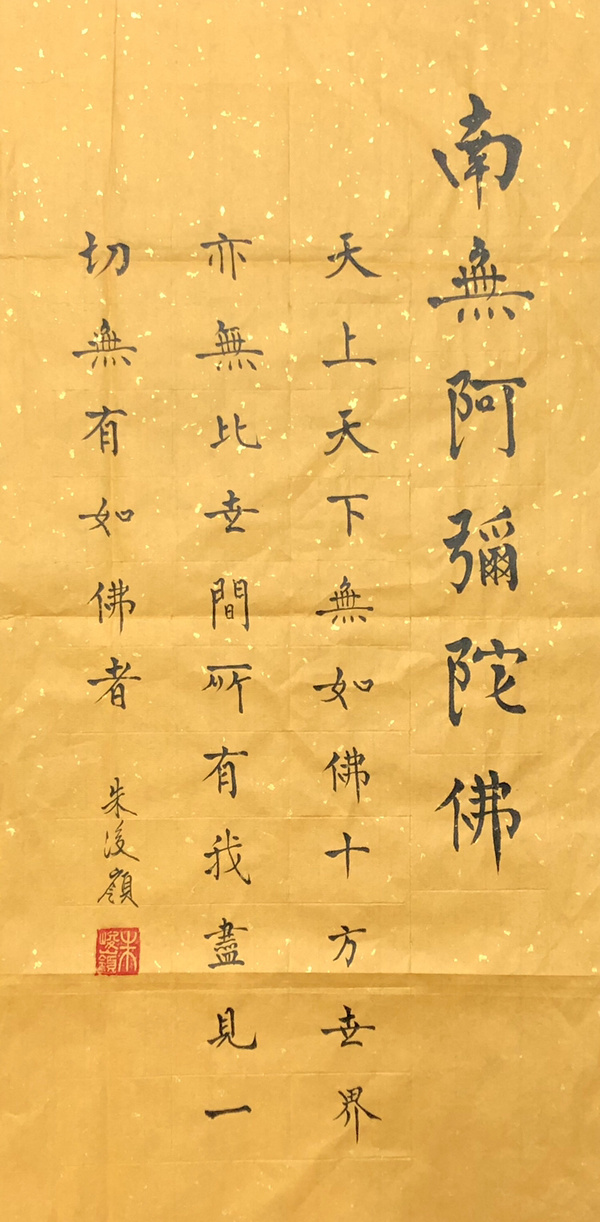 南無阿彌陀佛
天上天下無如佛十方世界
亦無比世間所有我盡見一
切無有如佛者
朱峻嶺
朱峻嶺